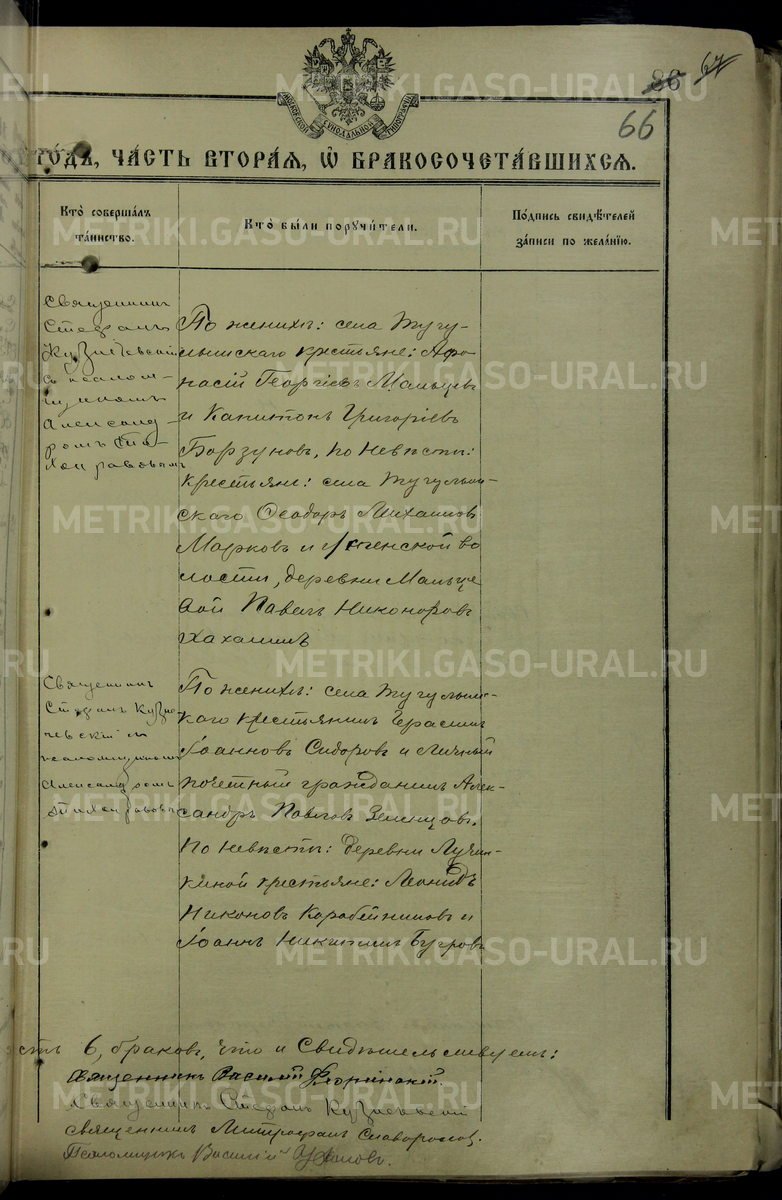 86 67
66
МОСКОВСКОЙ СѴНОДАЛЬНОЙ ТИПОГРАФІИ
ГОДЪ, ЧАСТЬ ВТОРАЯ, Ѡ БРАКОСОЧЕТАВШИХСЯ.
Кто совершалъ
таинство.
Кто были поручители.
Подпись свидѣтелей
записи по желанію.
Священникъ
Стефанъ
Кузнечевскій
съ псалом-
щикомъ
Александ-
ромъ Сти-
хонравовымъ
По женихѣ: села Тугу-
лымскаго крестьяне: Афо-
насій Георгіевъ Мальцевъ
и Капитонъ Григоріевъ
Борзуновъ, по невѣстѣ:
крестьяне: села Тугулым-
скаго Ѳеодоръ Михаиловъ
Марковъ и во
лости, деревни Мальце
вой Павелъ Никоноровъ
Хахалинъ
Священникъ
Стефанъ Кузне
чевскій съ
псаломщикомъ
Александромъ
Тихонравовъ
По женихѣ: села Тугулымс-
каго крестьянинъ Герасимъ
Іоанновъ Сидоровъ и личный
почетный гражданинъ Алек-
сандръ Павловъ Земнцовъ,
по невѣстѣ: деревни Лучин-
киной крестьяне: Леонидъ
Никоновъ Коробейниковъ и
Іоаннъ Никитинъ Бугровъ
сть 6, браковъ, что и Свидѣтельствуемъ:
Священникъ Василій Флоринскій.
Священникъ Стефанъ Кузнечевскій
священникъ Митрофанъ Словоросовъ.
Псаломщикъ Василій
METRIKI.GASO-URAL.RU